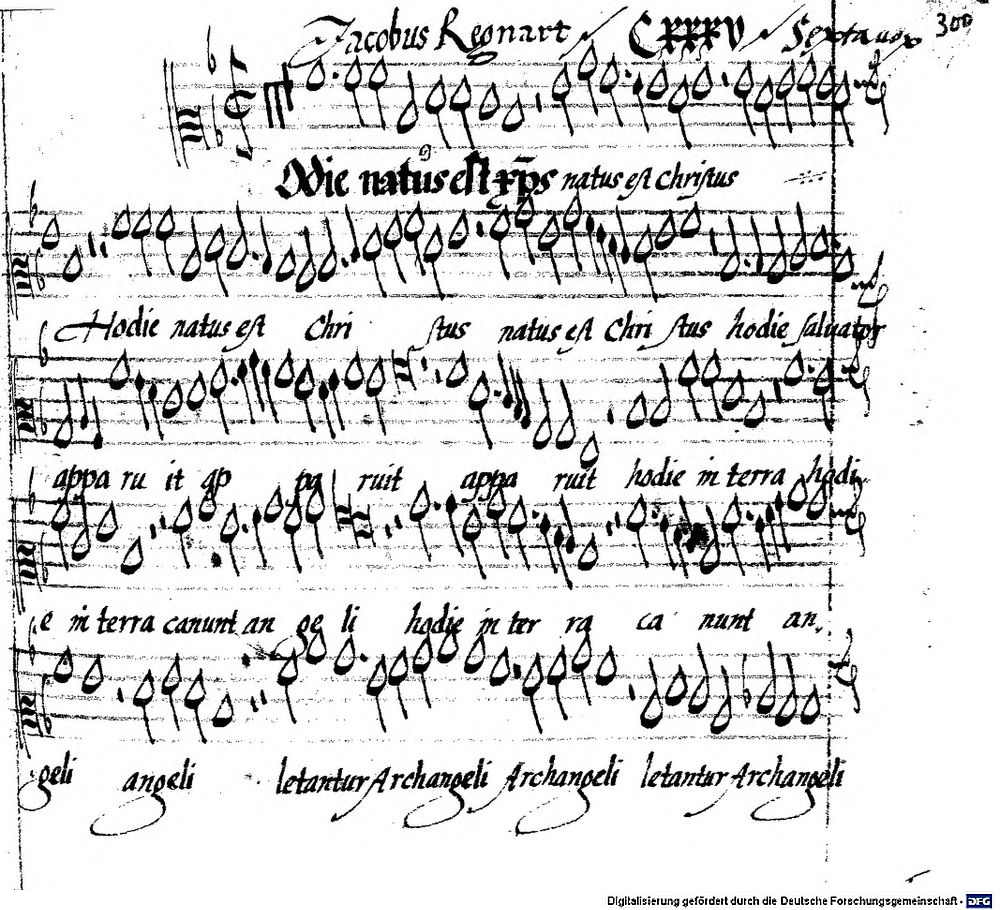 Jacobus Regnart CXXXV Sexta vox 300
Odie natus est xp̄s natus est Christus
Hodie natus est Chri stus natus est Chri stus hodie saluator
appa ru it ap pa ruit appa ruit hodie in terra hodi
e in terra canunt an ge li hodie in ter ra ca nunt an
geli angeli letantur Archangeli Archangeli letantur Archangeli
Digitalisierung gefördert durch die Deutsche Forschungsgemeinschaft - DFG